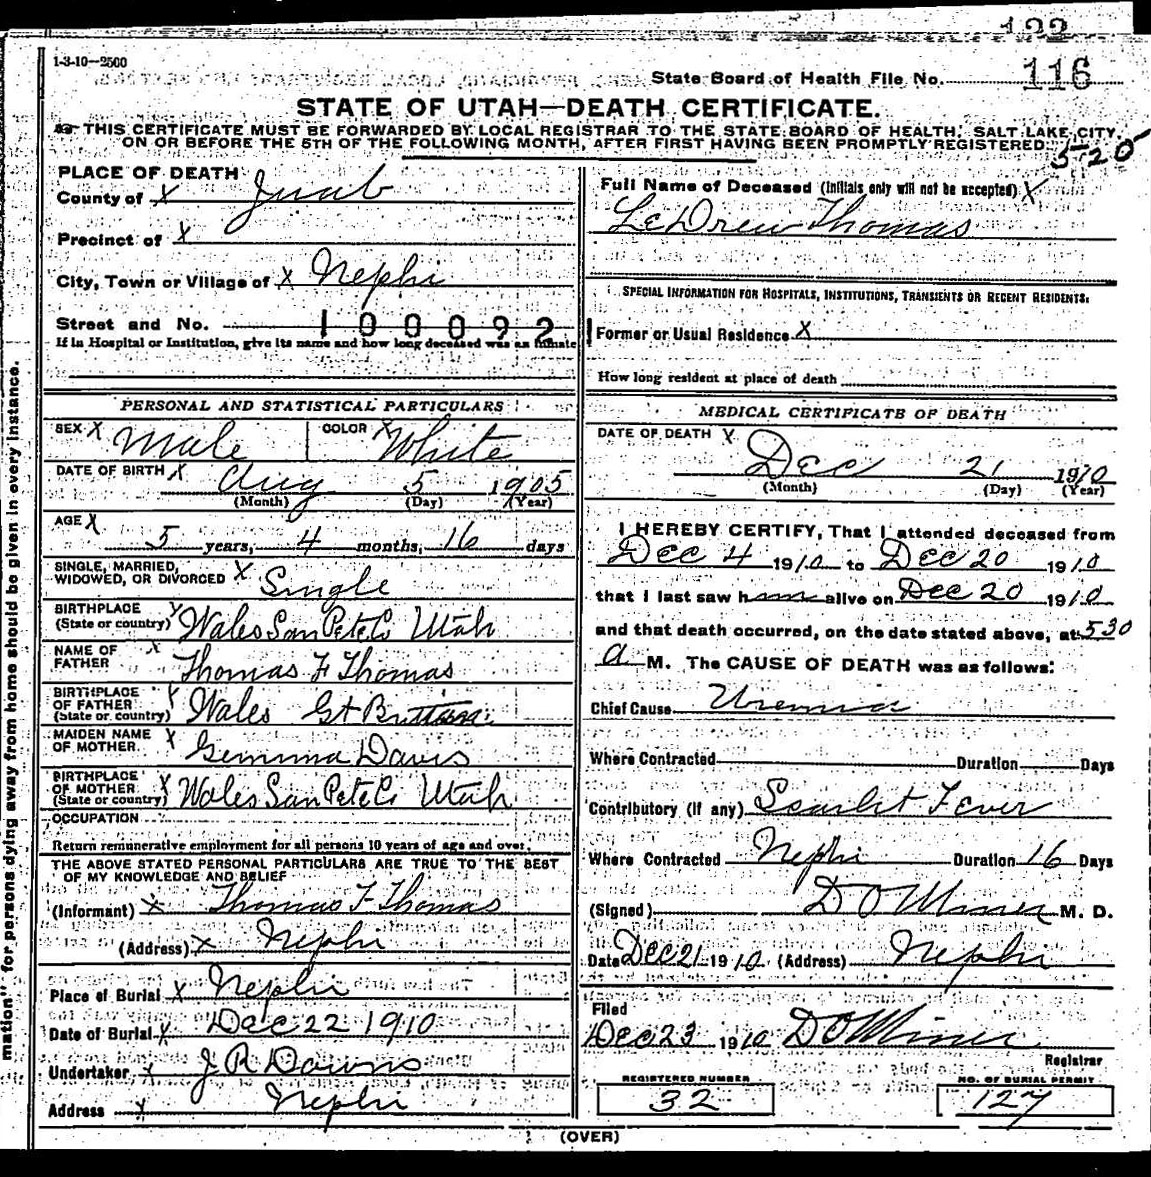 122
1-3-10—2500
State Board of Health File No. 116
STATE OF UTAH—DEATH CERTIFICATE.
THIS CERTIFICATE MUST BE FORWARDED BY LOCAL REGISTRAR TO THE STATE BOARD OF HEALTH, SALT LAKE CITY,
ON OR BEFORE THE 5TH OF THE FOLLOWING MONTH, AFTER FIRST HAVING BEEN PROMPTLY REGISTERED.
5-20
PLACE OF DEATH
County of X Juab
Precinct of X
City, Town or Village of X Nephi
Street and No. 100092
If in Hospital or Institution, give its name and how long deceased was an inmate
PERSONAL AND STATISTICAL PARTICULARS
SEX X Male COLOR X White
DATE OF BIRTH X Aug 5 1905
(Month) (Day) (Year)
AGE X
5 years, 4 months, 16 days
SINGLE, MARRIED,
WIDOWED, OR DIVORCED X Single
BIRTHPLACE
(State or country) X Wales San Pete Co Utah
NAME OF
FATHER X Thomas F Thomas
BIRTHPLACE
OF FATHER
(State or country) X Wales Gt Brittan
MAIDEN NAME
OF MOTHER X Gemima Davis
BIRTHPLACE
OF MOTHER
(State or country) X Wales San Pete Co Utah
OCCUPATION
Return remunerative employment for all persons 10 years of age and over.
THE ABOVE STATED PERSONAL PARTICULARS ARE TRUE TO THE BEST
OF MY KNOWLEDGE AND BELIEF
(Informant) X Thomas F Thomas
(Address) X Nephi
Place of Burial X Nephi
Date of Burial X Dec 22 1910
Undertaker X J R Downs
Address X Nephi
Full Name of Deceased (Initials only will not be accepted) X
LeDrew Thomas
SPECIAL INFORMATION FOR HOSPITALS, INSTITUTIONS, TRANSIENTS OR RECENT RESIDENTS:
Former or Usual Residence X
How long resident at place of death
MEDICAL CERTIFICATE OF DEATH
DATE OF DEATH X
Dec 21 1910
(Month) (Day) (Year)
I HEREBY CERTIFY, That I attended deceased from
Dec 4 1910 to Dec 20 1910
that I last saw him alive on Dec 20 1910
and that death occurred, on the date stated above, at 530
a M. The CAUSE OF DEATH was as follows:
Chief Cause Uremia
Where Contracted Duration Days
Contributory (if any) Scarlet Fever
Where Contracted Nephi Duration 16 Days
(Signed) D O Miner M. D.
Date Dec 21 1910 (Address) Nephi
Filed
Dec 23 1910 D O Miner
Registrar
REGISTERED NUMBER
32
NO. OF BURIAL PERMIT
127
(OVER)
mation" for persons dying away from home should be given in every instance.